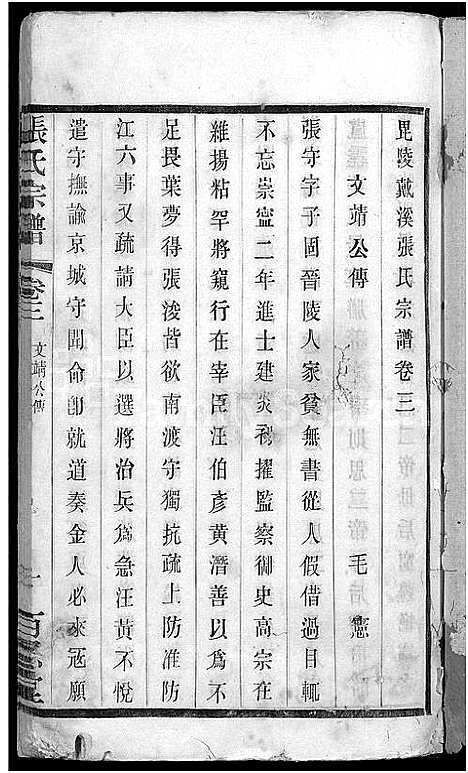 毘陵戴溪張氏宗譜卷三
文靖公傳 毛憲
張守字子固晉陵人家貧無書從人假借過目輒
不忘崇寍二年進士建炎初擢監察御史高宗在
維揚粘罕將窺行在宰臣汪伯彥黃潛善以爲不
足畏葉夢得張浚皆欲南渡守獨抗疏上防准防
江六事又疏請大臣以選將治兵爲急汪黃不悅
遣守撫諭京城守聞命卽就道奏金人必來寇願
張氏宗譜
卷三
文靖公傳
一
百忍堂